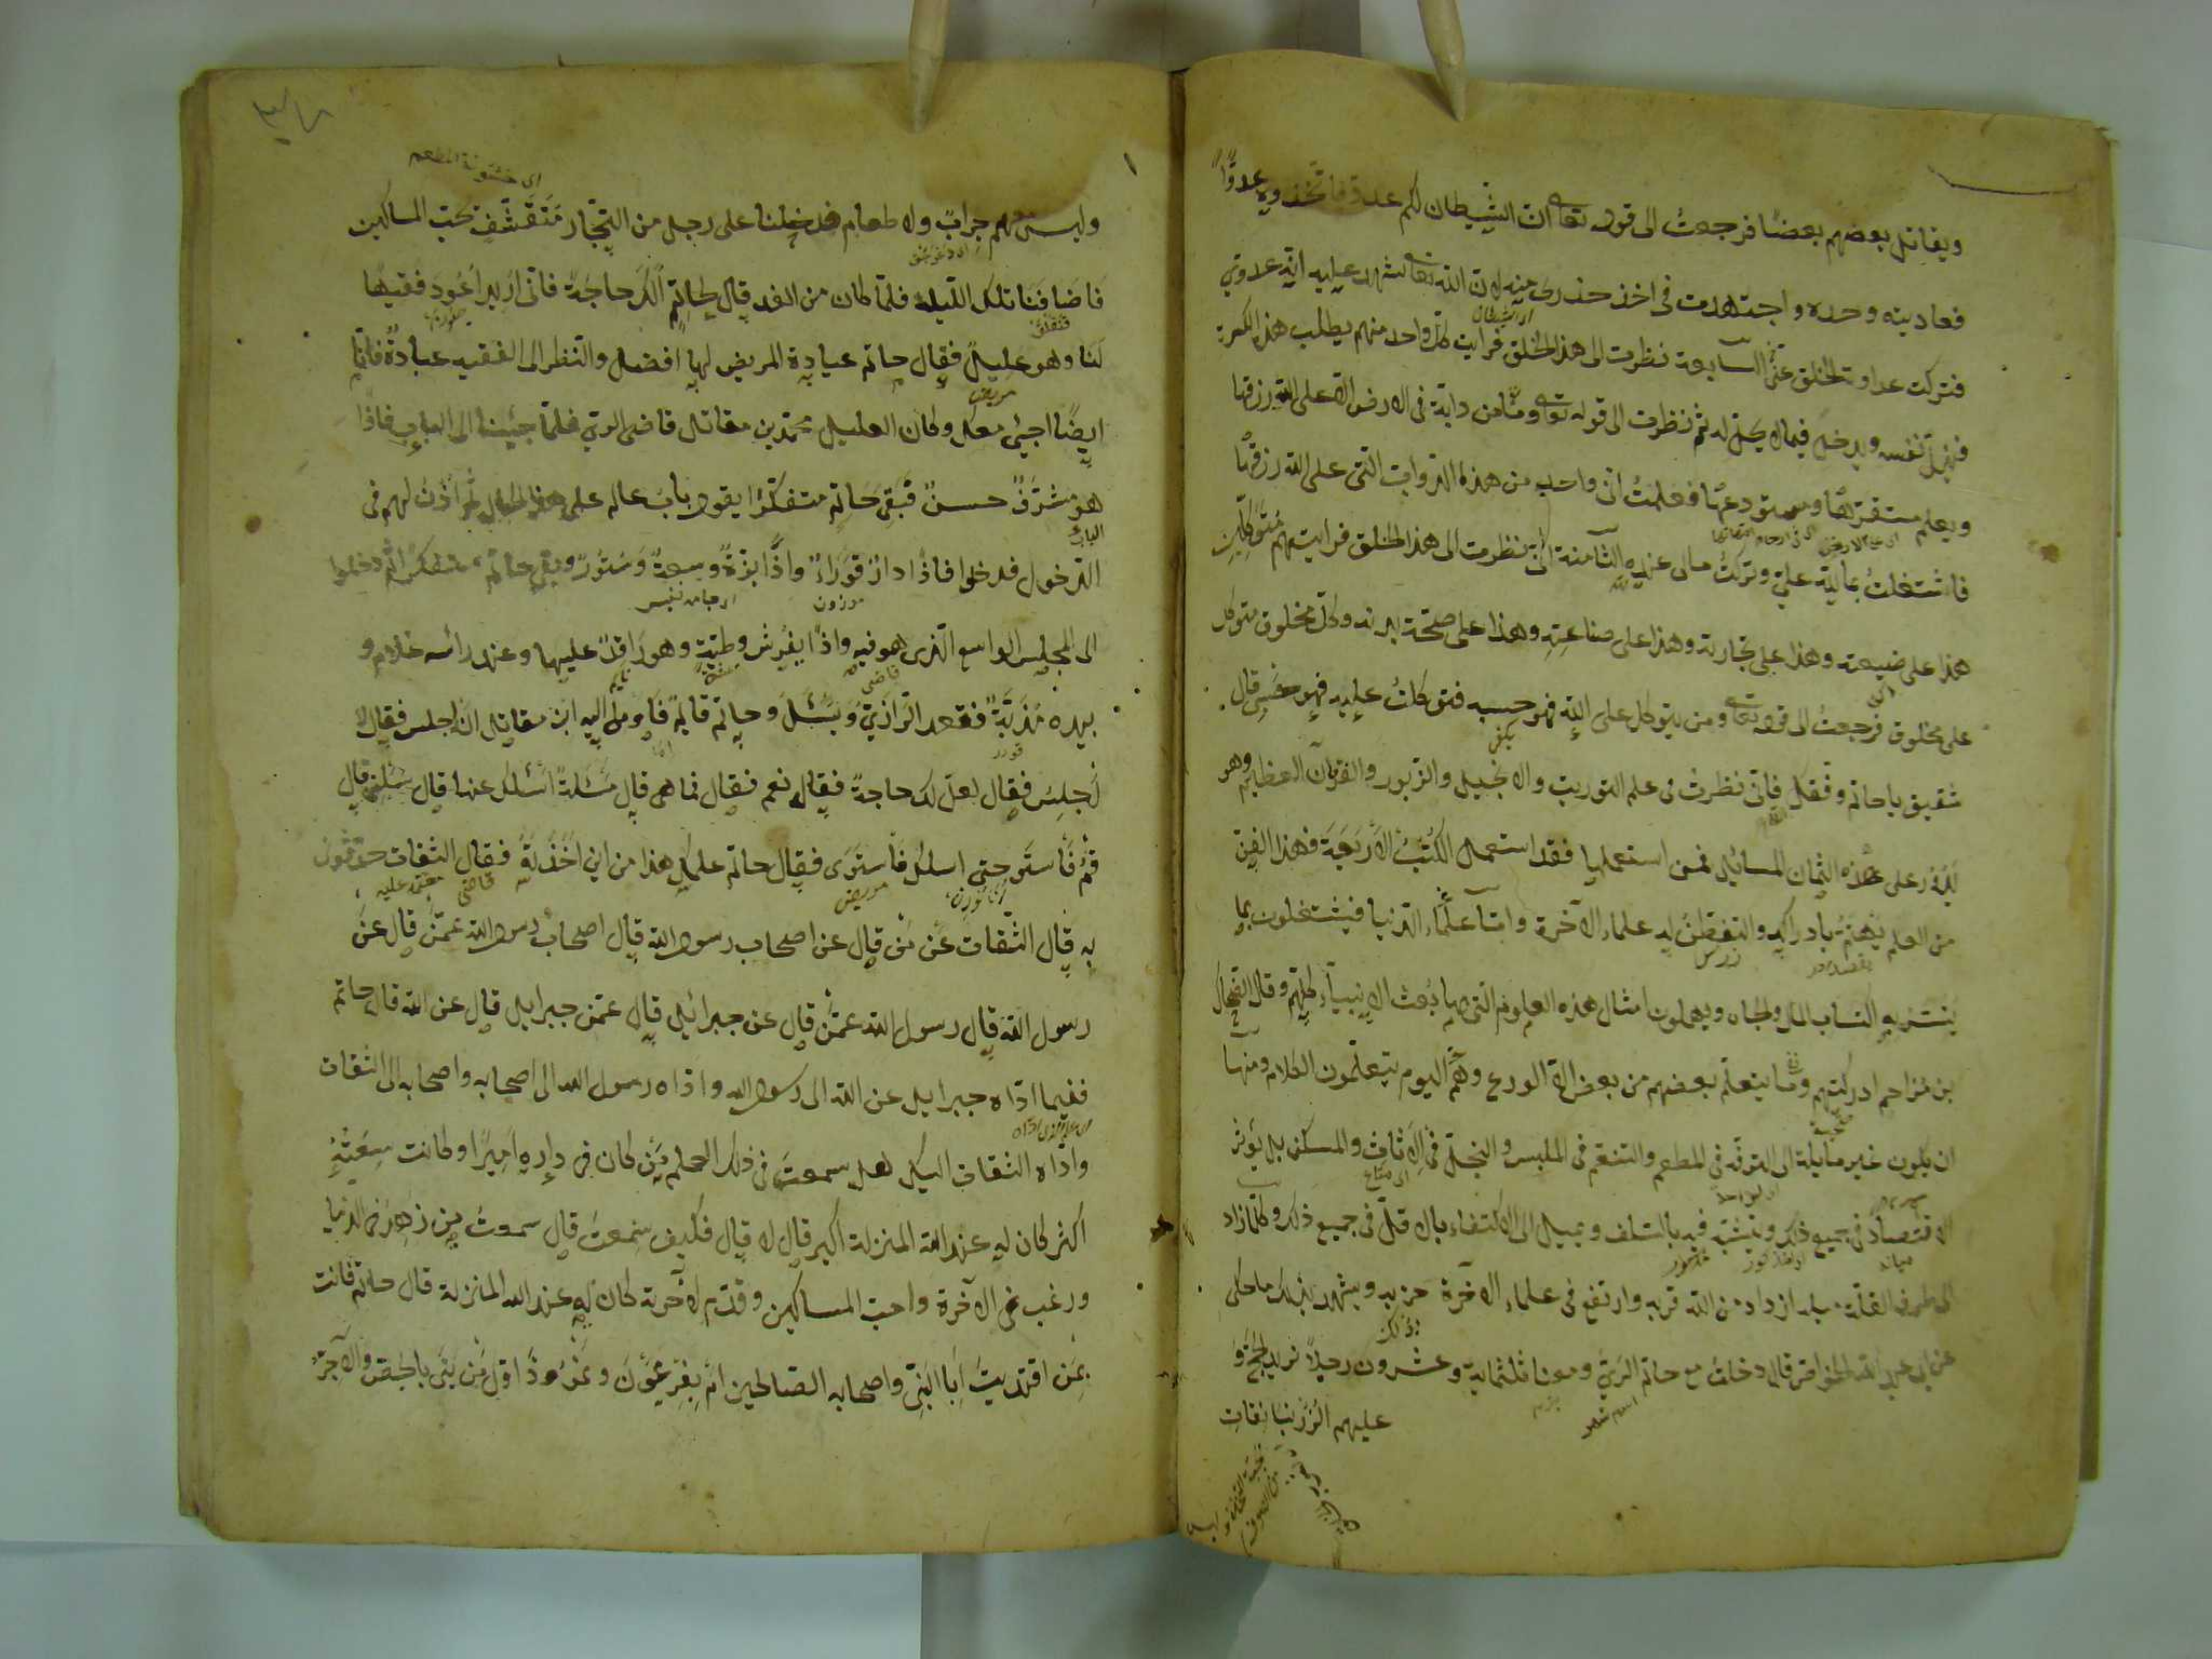 ويقاتل بعضهم بعضًا فرجعتُ الى قوله تعا ان الشيطان لكم عدو فاتخذوه عدوًّا
فعاديته وحده واجتهدت فى اخذ حذرى منه لان الله تعا شهد عليه انه عدو لى
فتركت عداوة الخلق غيره السابعة نظرت الى هذا الخلق فرايت كل واحد منهم يطلب هذه الكسرة
فيذل نفسه ويدخل فيما لا يحل له ثم نظرت الى قوله تعا وما من دابة فى الارض الا على الله رزقها
ويعلم مستقرها ومستودعها فعلمتُ انى واحد من هذه الدواب التى على الله رزقها
فاشتغلتُ بما لله على وتركتُ مالى عنده الثامنة انى نظرت الى هذا الخلق فرايتهم متوكلين
هذا على ضيعته وهذا على تجارته وهذا على صناعته وهذا على صحة بدنه وكل مخلوق متوكل
على مخلوق فرجعتُ الى قوله تعا ومن يتوكل على الله فهو حسبه فتوكلتُ عليه فهو حسبى قال
شقيق يا حاتم وفقك فانى نظرت فى علم التوريت والانجيل والزبور والفرقان العظيم وهو
يدور على هذه الثمان المسائل فمن استعملها فقد استعمل الكتب الاربعة فهذا الفن
من العلم يهتم بادراكه والتفطن له علماء الآخرة واما علماء الدنيا فيشتغلون بما
يتيسر به اكتساب المال والجاه ويهملون امثال هذه العلوم التى بها بُعث الانبياء كلهم وقال الضحاك
بن مزاحم ادركتهم وما يتعلم بعضهم من بعض الا الورع وهم اليوم يتعلمون الكلام ومنها
ان يكون غير مايلة الى الترفه فى المطعم والتنعم فى الملبس والتجمل فى الاثاث والمسكن بل يؤثر
الاقتصاد فى جميع ذلك ويتشبه فيه بالسلف ويميل الى الاكتفاء بالاقل فى جميع ذلك وكلما زاد
الى طرف القلة ميله ازداد من الله قربه وارتفع فى علماء الآخرة حزبه ويشهد لذلك ما حكى
عن ابى عبد الله الخواص قال دخلت مع حاتم الرى ومعنا ثلثماية وعشرون رجلا نريد الحج و
عليهم الزرنبانقات
وليس معهم جراب ولا طعام فدخلنا على رجل من التجار متقشف يحب المساكين
فاضافنا تلك الليلة فلما كان من الغد قال لحاتم الك حاجة فانى اريد اعود فقيها
لنا وهو عليل فقال حاتم عيادة المريض لها افضل والنظر الى الفقيه عبادة فانا
ايضًا اجيئ معك وكان العليل محمد بن مقاتل قاضى الرى فلما جئنا الى الباب فاذا
هو مشرف حسن فبقى حاتم متفكرا يقول باب عالم على هذا الحال ثم اذن لهم فى
الدخول فدخلوا فاذا دار قوراء واذا بزة وسعة وستور وبقى حاتم متفكرا ثم دخلوا
الى المجلس الواسع الذى هو فيه واذا بفرش وطية وهو راقد عليها وعند رأسه غلام و
بيده مذبة فقعد الرازى ويسئل وحاتم قائم فاومى اليه ابن مقاتل ان اجلس فقال لا
اجلس فقال لعل لك حاجة فقال نعم فقال فما هى قال مسئلة اسئلك عنها قال سلنى قال
قم فاستو حتى اسئلك فاستوى فقال حاتم علمك هذا من اين اخذته فقال الثقات حدثونى
به قال الثقات عن من قال عن اصحاب رسول الله قال اصحاب رسول الله عمن قال عن
رسول الله قال رسول الله عمن قال عن جبرائيل قال عمن جبرايل قال عن الله قال حاتم
ففيما اداه جبرايل عن الله الى رسول الله واداه رسول الله الى اصحابه واصحابه الى الثقات
واداه الثقات اليك هل سمعت فى ذلك العلم من كان فى داره اميرًا وكانت سعته
اكثر كان له عند الله المنزلة اكبر قال لا قال فكيف سمعت قال سمعتُ من زهد فى الدنيا
ورغب فى الآخرة واحب المساكين وقدم لآخرته كان له عند الله المنزلة قال حاتم فانت
بمن اقتديتَ أبا النبى واصحابه الصالحين ام بفرعون ونمرود اول من بنى بالجص والآجر